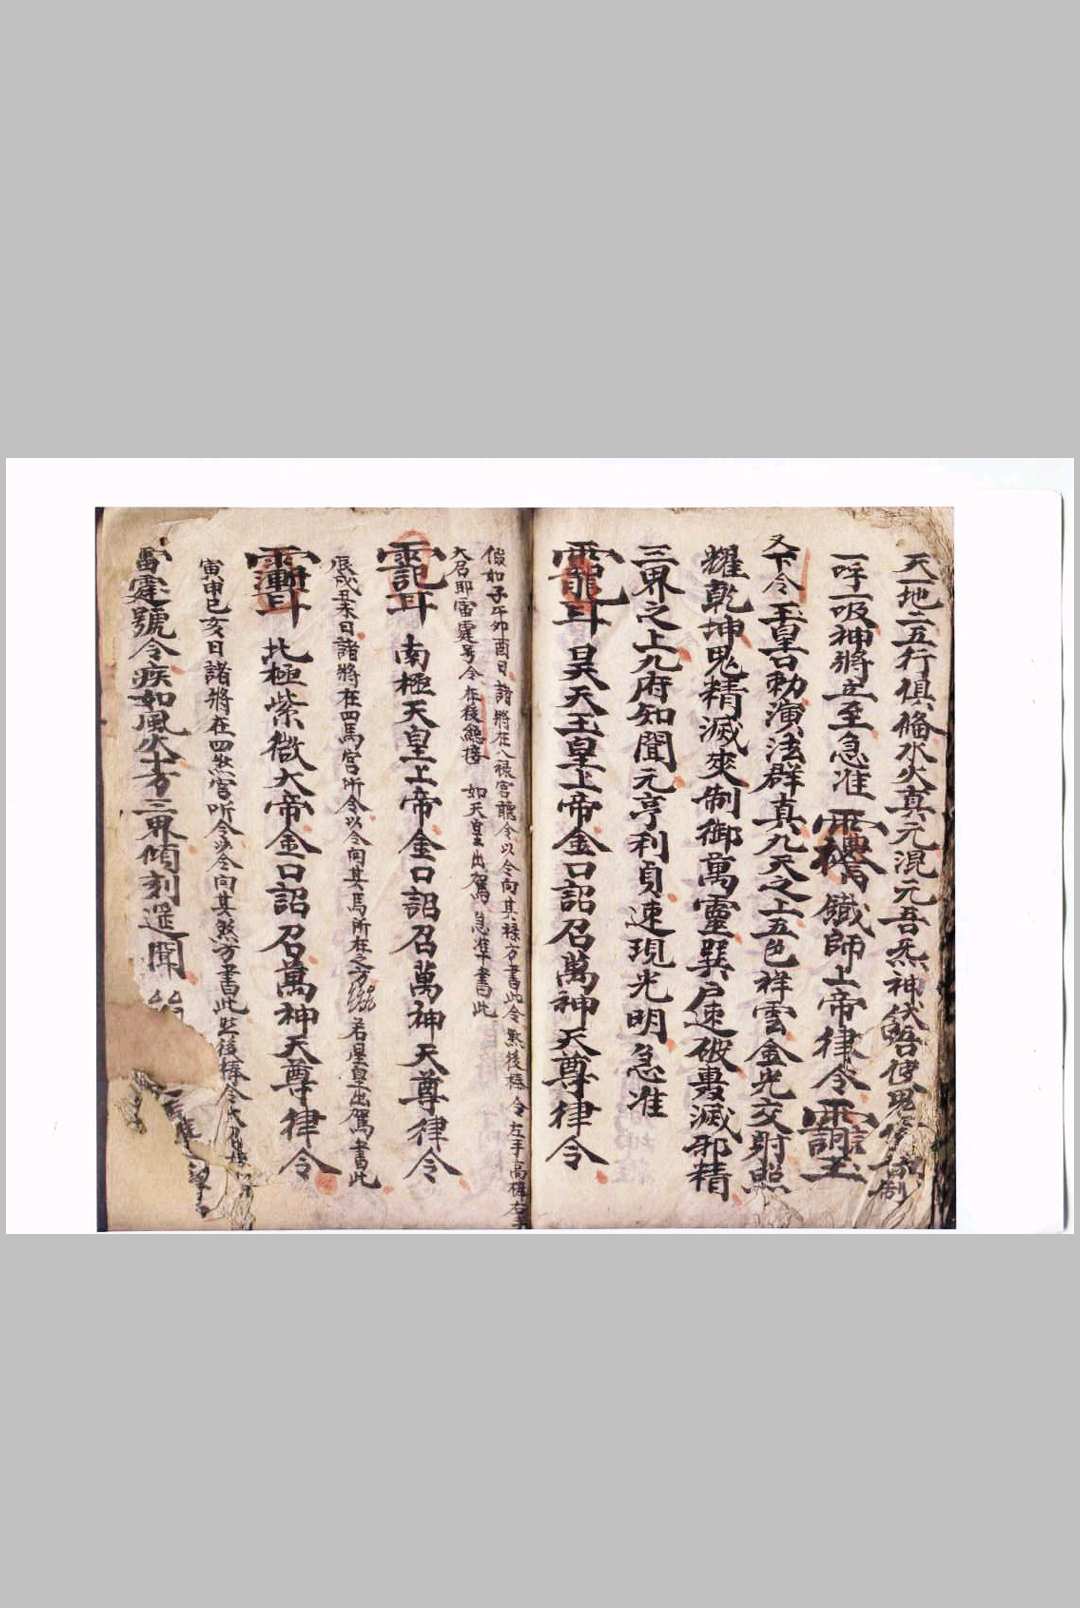 天一地二五行俱備水火真元混元吾炁神
一呼一吸神將立至急准 鐵師上帝律令
又下令玉皇口勅演法群真九天之上五色祥雲金光交射照
耀乾坤鬼精滅爽制御萬靈巽戶速破轟滅邪精
三界之上九府知聞元亨利貞速現光明急准
昊天玉皇上帝金口詔召萬神天尊律令
假如子午卯酉日諸將在八祿宮聽令以令向其祿方書此令然後棒令左手高棒右手
大召耶雷霆号令在後 如天皇出駕急準書此
南極天皇上帝金口詔召萬神天尊律令
辰戌丑未日諸將在四馬宮所令以令向其馬所在之方 若星皇出駕書此
北極紫微大帝金口詔召萬神天尊律令
寅申巳亥日諸將在四煞宮听令以令向其煞方書此然後棒令大召
雷霆號令疾如風火十方三界傾刻遥聞